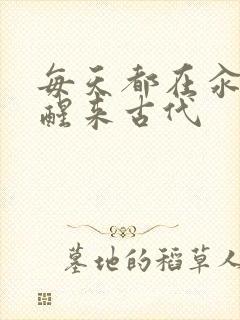 每天都在
醒来古代
墓地的稻草人